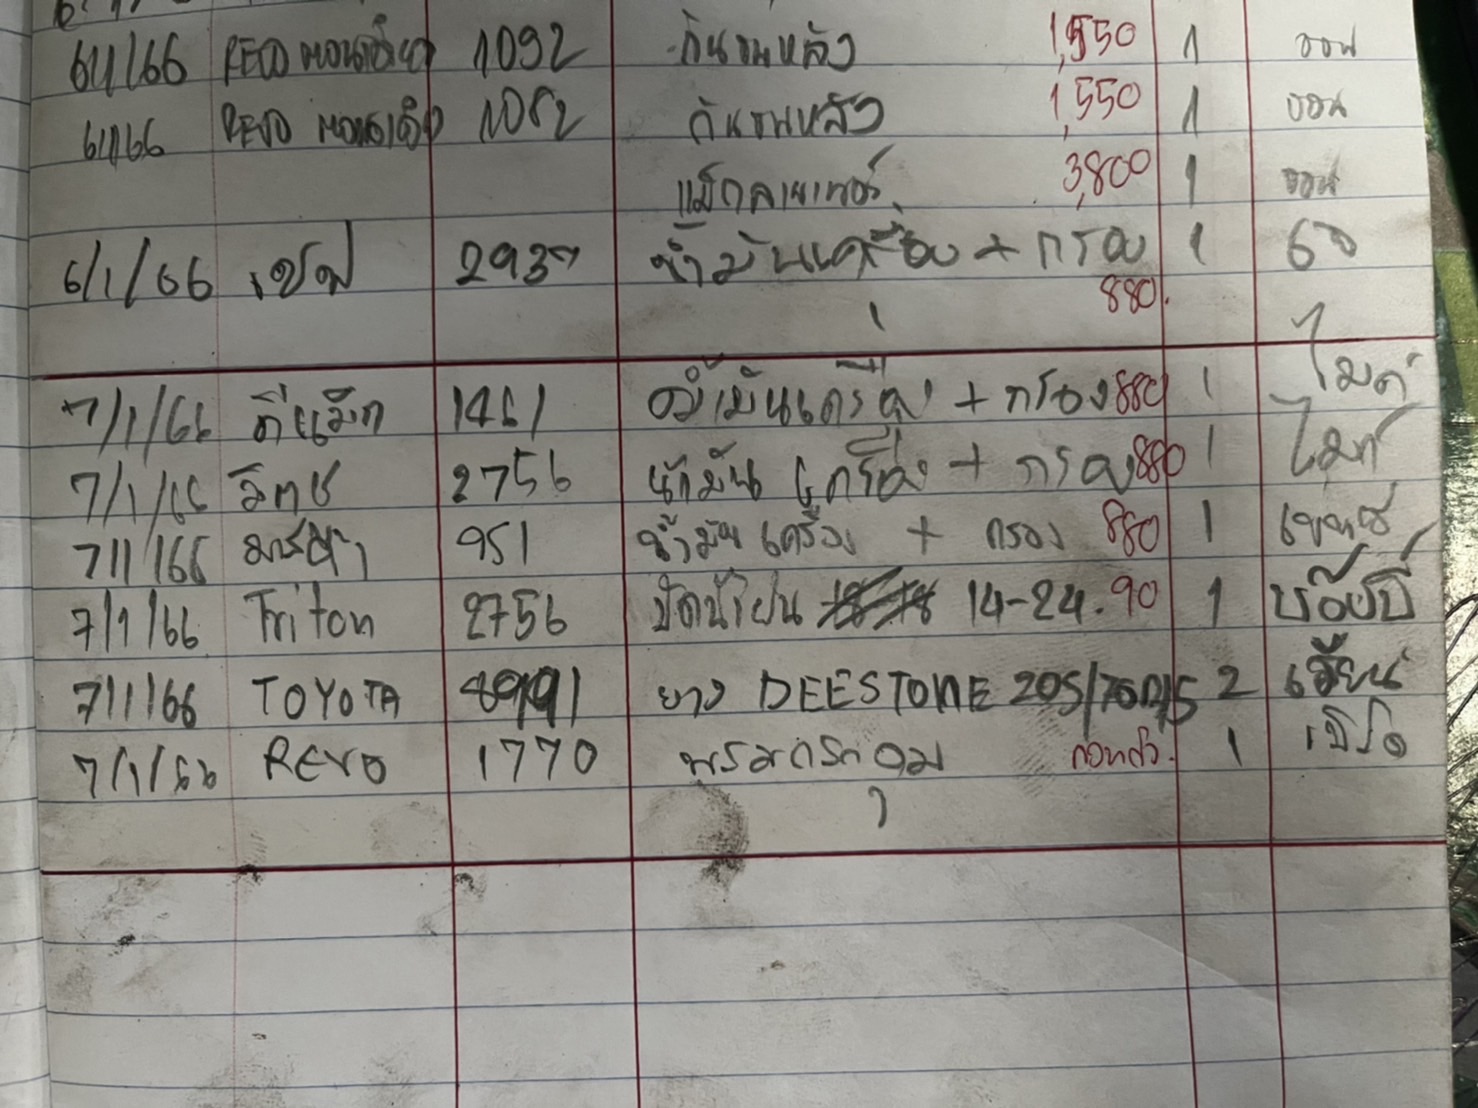 6/1/66 REVO ตอนเดียว 1092 กันชนหลัง 1,550 1 ออน
6/1/66 REVO ตอนเดียว 1082 กันชนหลัง 1,550 1 ออน
แม็กลายเนอร์ 3,800 1 ออน
6/1/66 เชฟ 2937 น้ำมันเครื่อง + กรอง 1
880.
7/1/66 ดีแม็ก 1461 น้ำมันเครื่อง + กรอง 880 1 ไมค์
7/1/66 วีทช 2756 น้ำมันเครื่อง + กรอง 880 1 ไมท์
7/1/66 มาสด้า 951 น้ำมันเครื่อง + กรอง 880 1
7/1/66 Triton 2756 ปัดน้ำฝน 14-24. 90 1
7/1/66 TOYOTA ยาง DEESTONE 205/70R15 2
7/1/66 REVO 1770 พรมกระดุม 1